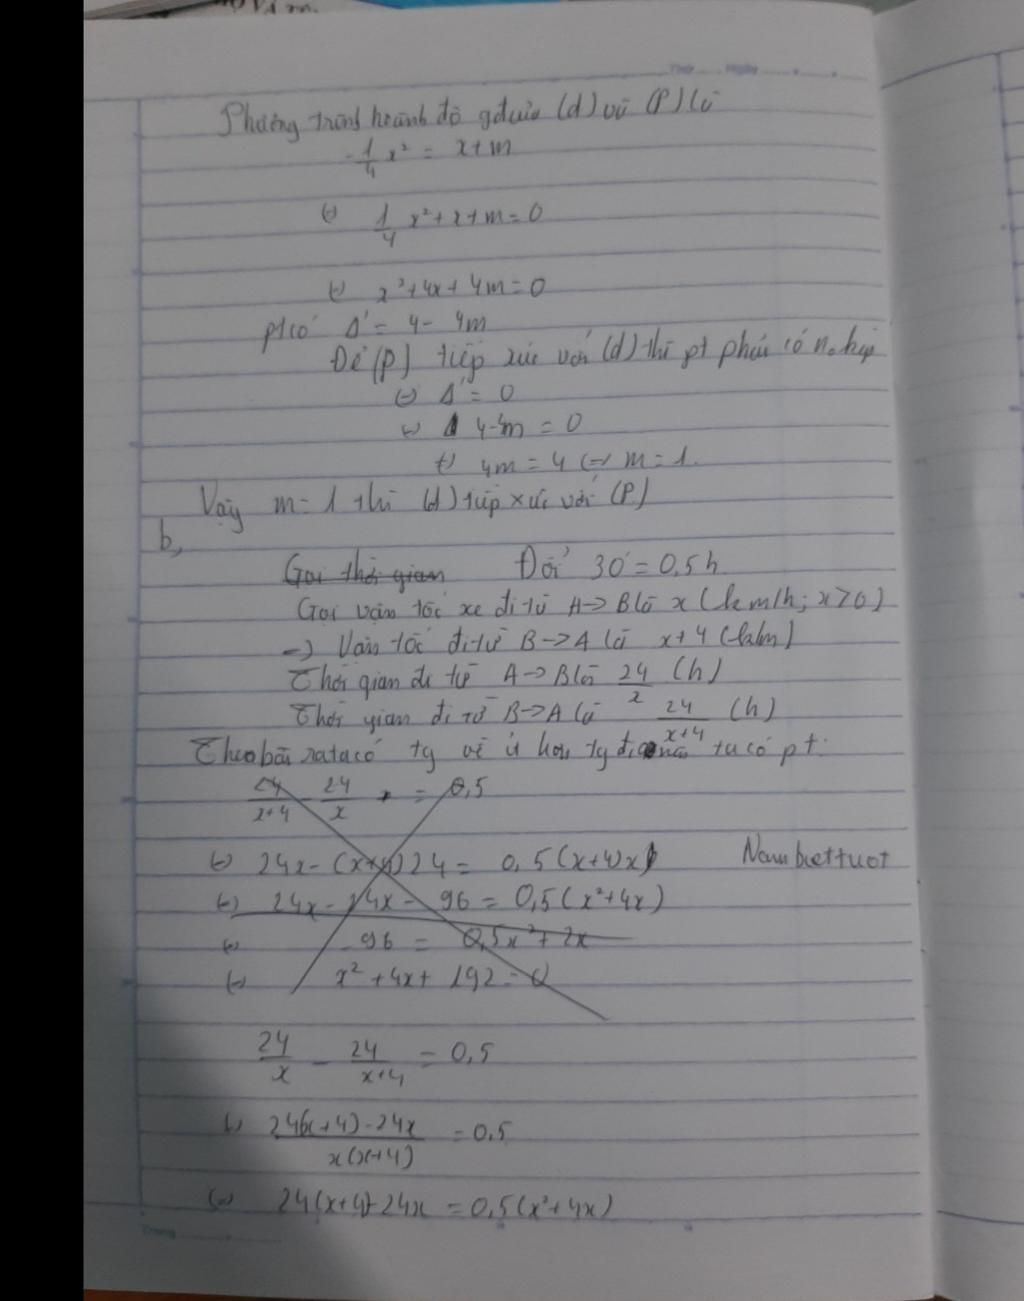 Thứ ..... Ngày
Phương trình hoành độ gđ của (d) và (P) là
-1/4 x² = x+m
(=) 1/4 x² + x + m = 0
(=) x² + 4x + 4m = 0
pt có Δ' = 4 - 4m
Để (P) tiếp xúc với (d) thì pt phải có n₀ kép
(=) Δ' = 0
(=) 4-4m = 0
(=) 4m = 4 (=) m = 1.
Vậy m = 1 thì (d) tiếp xúc với (P)
b,
Gọi thời gian Đổi 30' = 0,5h
Gọi vận tốc xe đi từ A -> B là x (km/h; x>0)
=) Vận tốc đi từ B -> A là x+4 (km/h)
Thời gian đi từ A -> B là 24/x (h)
Thời gian đi từ B -> A là 24/(x+4) (h)
Theo bài ra ta có tg về ít hơn tg đi nên ta có pt:
24/(x+4) - 24/x = 0,5
(=) 24x - (x+4)24 = 0,5(x+4)x
Nambiettuot
(=) 24x - 24x - 96 = 0,5(x²+4x)
(=) -96 = 0,5x² + 2x
(=) x² + 4x + 192 = 0
24/x - 24/(x+4) = 0,5
(=) (24(x+4) - 24x)/(x(x+4)) = 0,5
(=) 24(x+4) - 24x = 0,5(x²+4x)
Trang